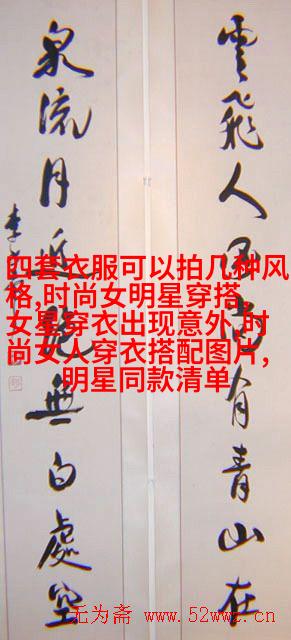 雲飛人尚有青山在
泉流月無白處空
李
四套衣服可以拍几种风
格,时尚女明星穿搭,
女星穿衣出现意外,时
尚女人穿衣搭配图片,
明星同款清单
无为斋 www.52wwz.cn